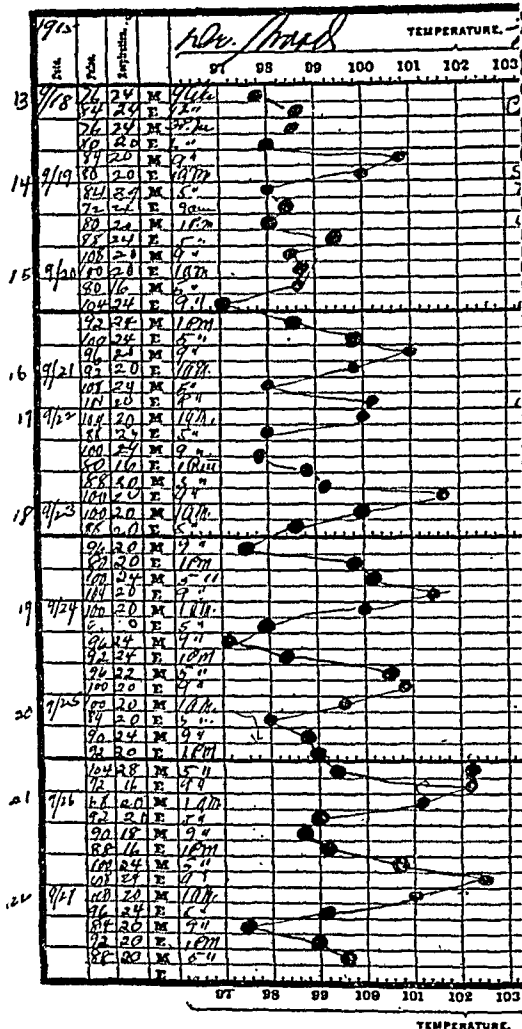 1915 Dr. TEMPERATURE.
Date. Pulse. Respiration. 97 98 99 100 101 102 103
13 9/18 76 24 M
84 24 E 12 "
76 24 M
80 20 E "
84 20 M 9 "
14 9/19 80 20 E 1 AM
84 24 M 5 "
72 24 E 9 am
80 20 M 1 P.M
88 24 E 5 "
108 20 M 9 "
15 9/20 100 20 E 1 AM
80 16 M 5 "
104 24 E 9 "
92 24 M 1 PM
100 24 E 5 "
96 20 M 9 "
16 9/21 92 20 E 1 AM.
108 24 M 5 "
104 20 E 9 "
17 9/22 104 20 M 1 AM.
88 24 E 5 "
100 24 M 9 "
80 16 E 1 PM
88 20 M 5 "
100 20 E 9 "
18 9/23 100 20 M 1 AM.
88 20 E 5 "
96 20 M 9 "
80 20 E 1 PM
100 24 M 5 "
104 20 E 9 "
19 9/24 100 20 M 1 AM.
E 5 "
96 24 M 9 "
92 24 E 1 PM
96 22 M 5 "
100 20 E 9 "
20 9/25 100 20 M 1 AM.
84 20 E 5 "
90 24 M 9 "
92 20 E 1 PM
104 28 M 5 "
72 16 E 9 "
21 9/26 88 20 M 1 AM
82 20 E 5 "
90 18 M 9 "
88 16 E 1 PM
100 24 M 5 "
24 E 9 "
22 9/27 20 M 1 AM.
96 24 E 5 "
84 20 M 9 "
92 20 E 1 PM
88 20 M 5 "
E
97 98 99 100 101 102 103
TEMPERATURE.